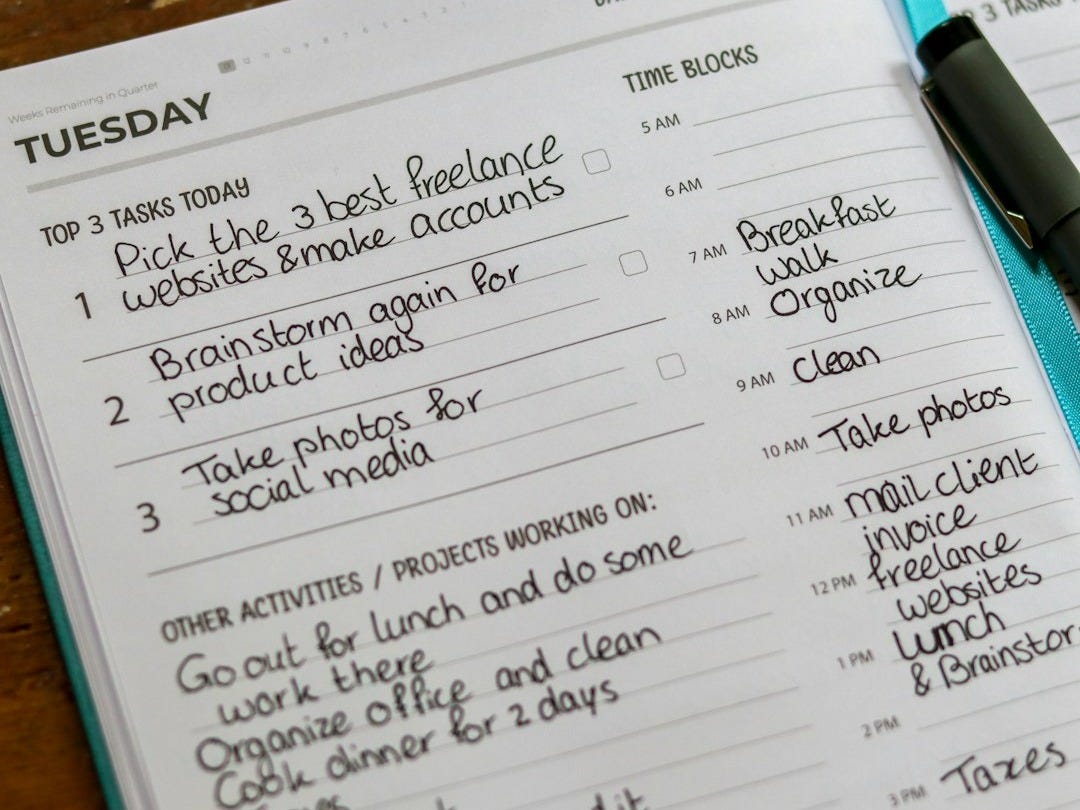 Weeks Remaining in Quarter
TUESDAY
TOP 3 TASKS TODAY
1
Pick the 3 best freelance
websites & make accounts
2
Brainstorm again for
product ideas
3
Take photos for
social media
OTHER ACTIVITIES / PROJECTS WORKING ON:
Go out for lunch and do some
work there
Organize office and clean
Cook dinner for 2 days
TIME BLOCKS
5 AM
6 AM
7 AM Breakfast
walk
8 AM Organize
9 AM Clean
10 AM Take photos
11 AM mail client
invoice
12 PM freelance
websites
1 PM Lunch
& Brainstor
2 PM
3 PM Taxes
3 TASKS